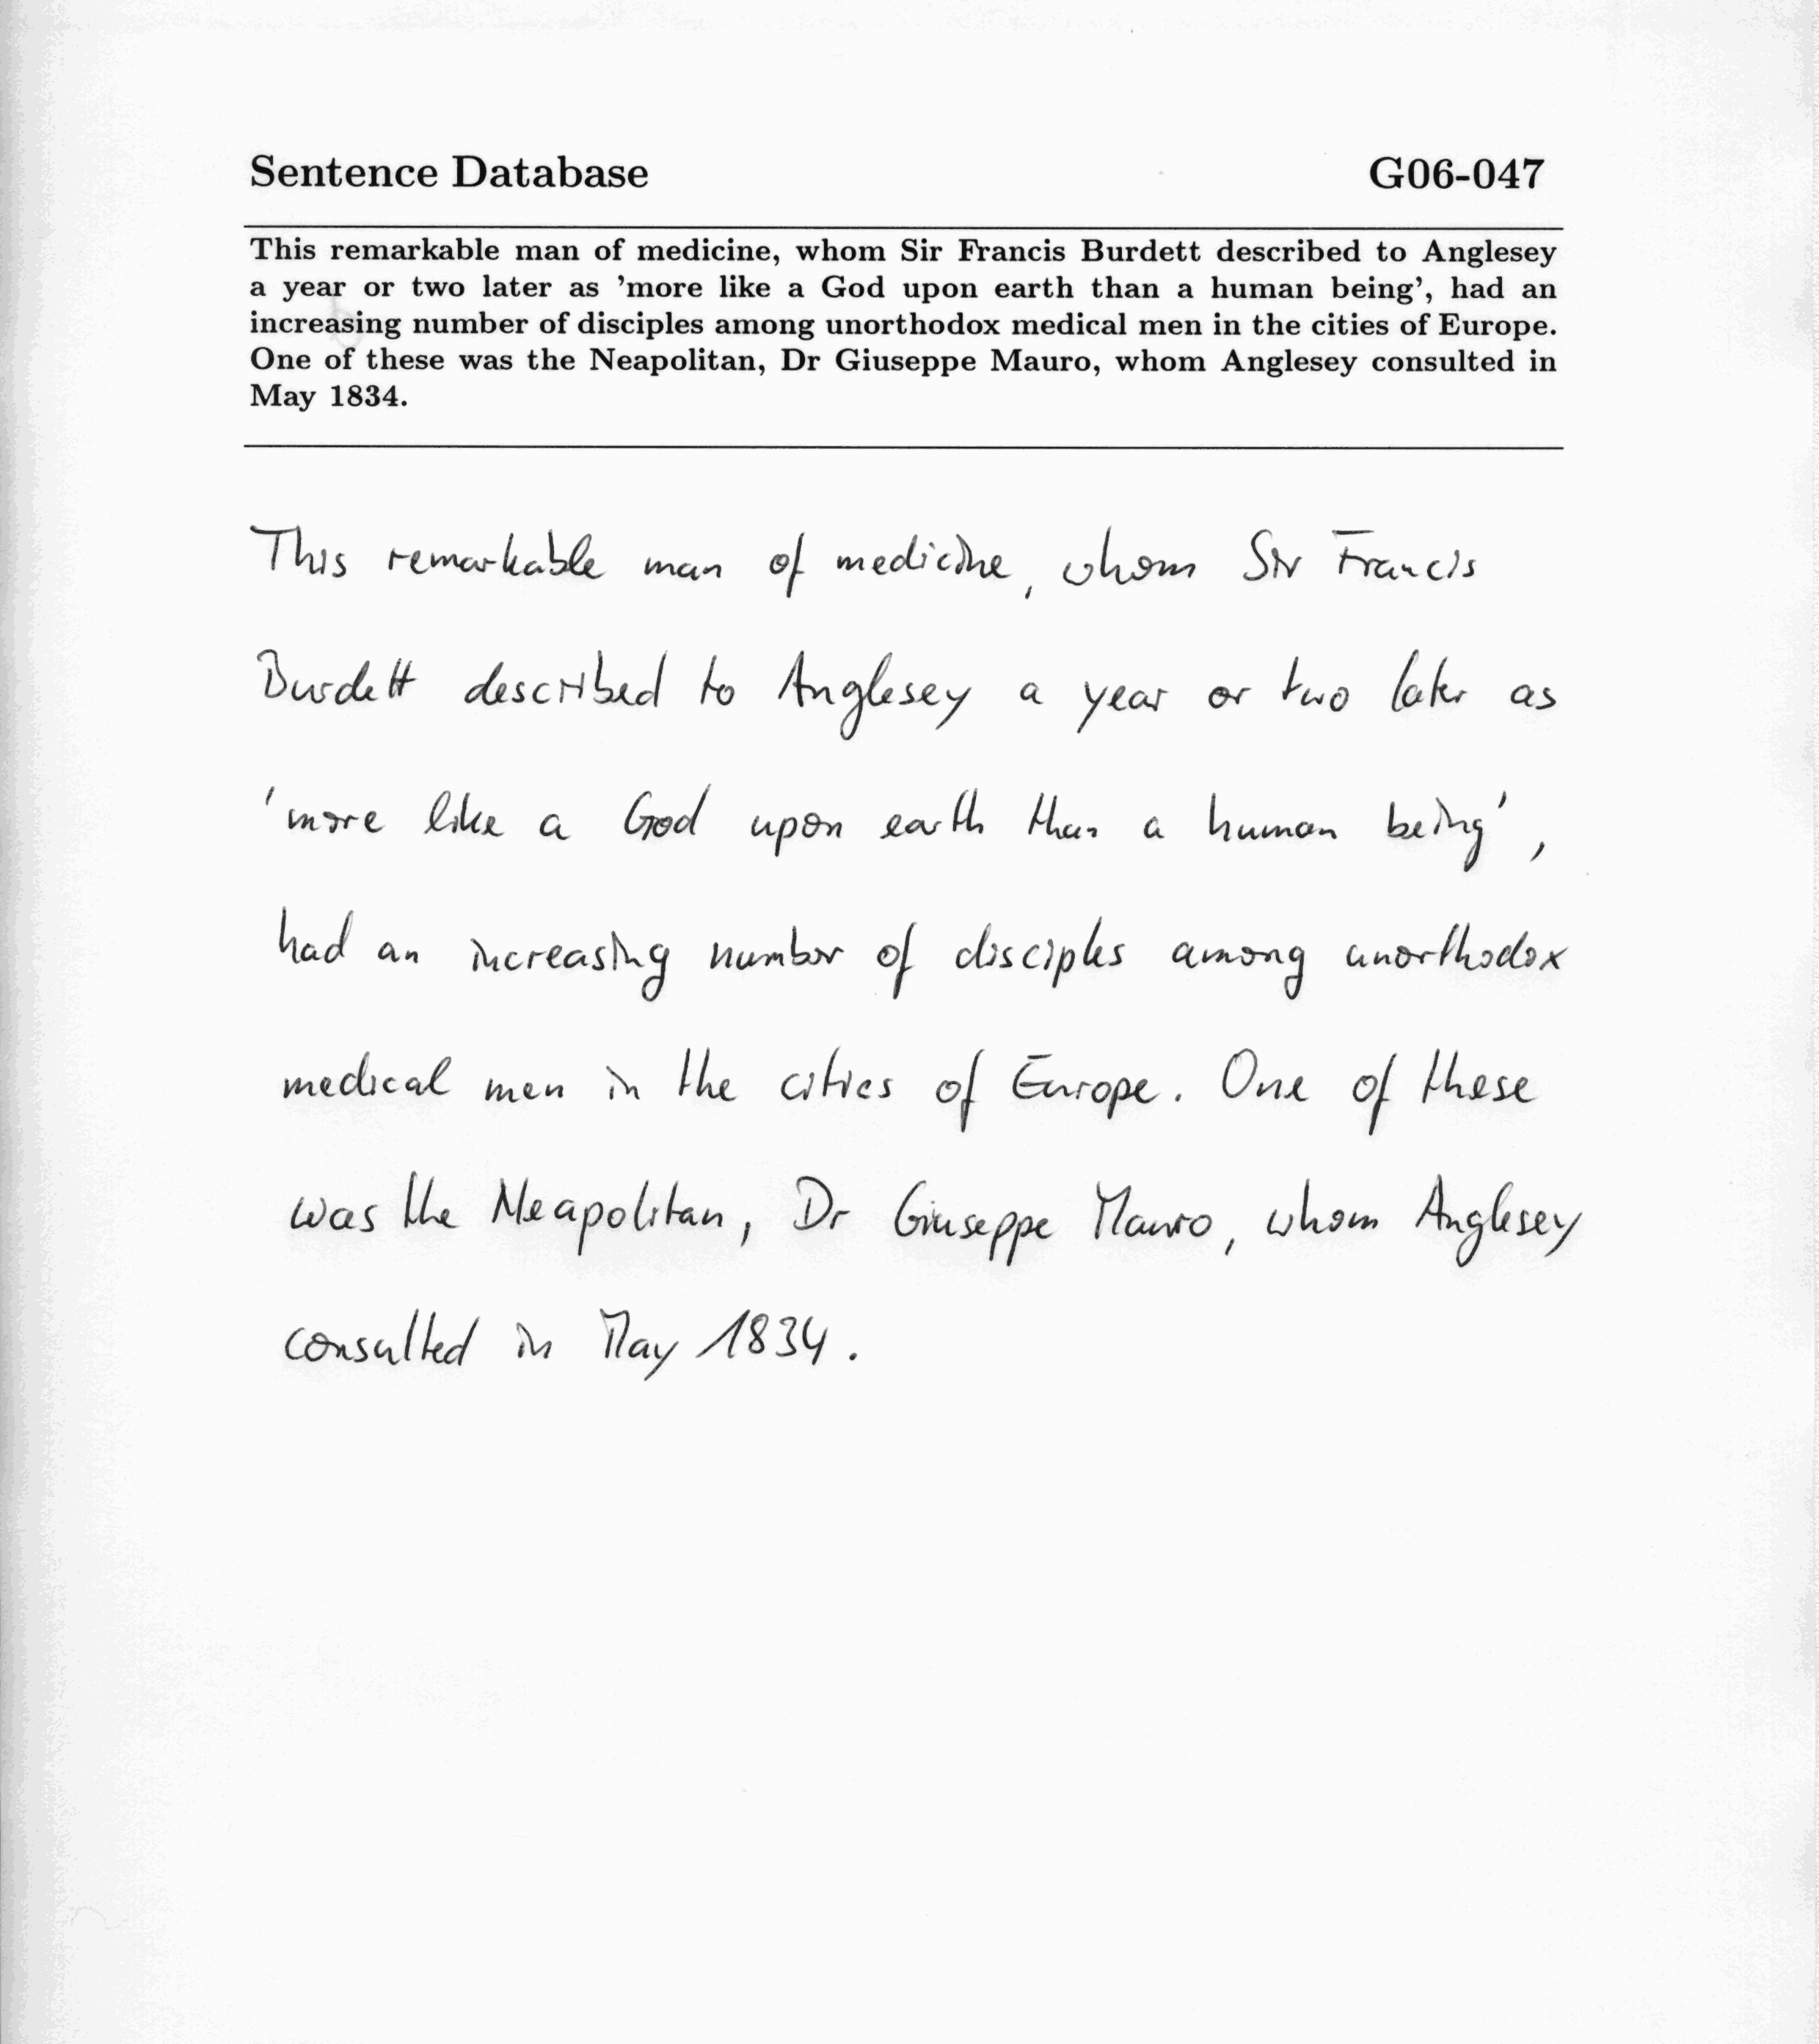 Sentence Database G06-047
This remarkable man of medicine, whom Sir Francis Burdett described to Anglesey
a year or two later as 'more like a God upon earth than a human being', had an
increasing number of disciples among unorthodox medical men in the cities of Europe.
One of these was the Neapolitan, Dr Giuseppe Mauro, whom Anglesey consulted in
May 1834.
This remarkable man of medicine, whom Sir Francis
Burdett described to Anglesey a year or two later as
'more like a God upon earth than a human being',
had an increasing number of disciples among unorthodox
medical men in the cities of Europe. One of these
was the Neapolitan, Dr Giuseppe Mauro, whom Anglesey
consulted in May 1834.